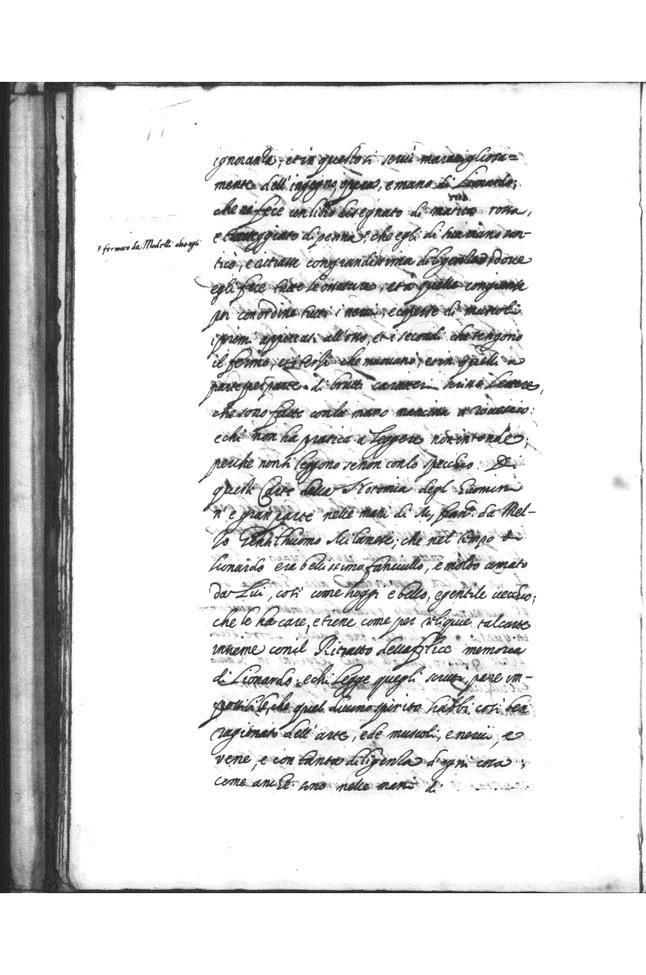 ignoranza, et in questo si servì maravigliosa=
mente dell'ingegno, opera, e mano di Lionardo;
che ne fece un libro disegnato di matita rossa,
e tratteggiato di penna, che egli di sua mano scor-
ticò, e ritrasse con grandissima diligenza, dove
† formare da Modelli ch'egli
egli fece tutte le ossature, et a quelle congiunse
poi con ordine tutti i nervi, e coperse di muscoli
i primi appiccati all'osso, et i secondi che tengono
il fermo, e i terzi che muovano, et in quelli a
parte per parte di brutti caratteri scrisse lettere,
che sono fatte con la mano mancina a rovescio:
e chi non ha pratica a leggere non intende;
perche non si leggono se non con lo specchio. Di
queste carte della Notomia degl' huomini
n'e gran parte nelle mani di M. Franc.o da Mel-
zo Gentilhuomo Milanese, che nel tempo di
Lionardo era bellissimo fanciullo, e molto amato
da Lui, così come hoggi e bello, e gentile vecchio;
che le ha care, e tiene come per reliquie tal carte
insieme con il Ritratto della felice memoria
di Lionardo: e chi legge quegli scritti, pare im-
possibile, che quel divino spirito habbi così ben
ragionato dell'arte, e de muscoli, e nervi, e
vene, e con tanta diligenza d'ogni cosa;
come anche sono nelle mani di